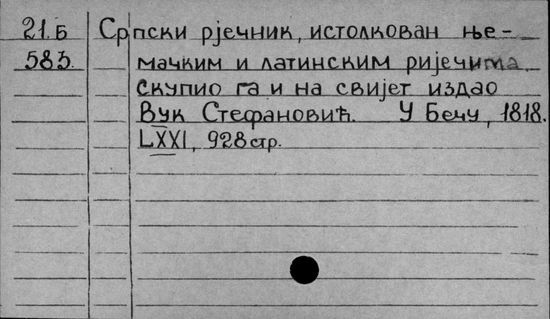 21.Б Српски рјечник, истолкован ње-
583. мачким и латинским ријечима.
Скупио га и на свијет издао
Вук Стефановић. У Бечу, 1818.
LXXI, 928 стр.